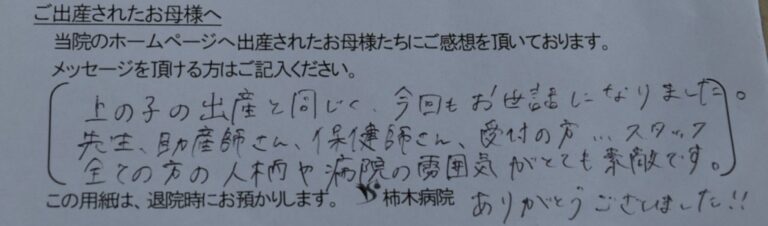 ご出産されたお母様へ
当院のホームページへ出産されたお母様たちにご感想を頂いております。
メッセージを頂ける方はご記入ください。
上の子の出産と同じく、今回もお世話になりました。
先生、助産師さん、保健師さん、受付の方…スタッフ
全ての方の人柄や病院の雰囲気がとても素敵です。
この用紙は、退院時にお預かりします。 柿木病院
ありがとうございました!!